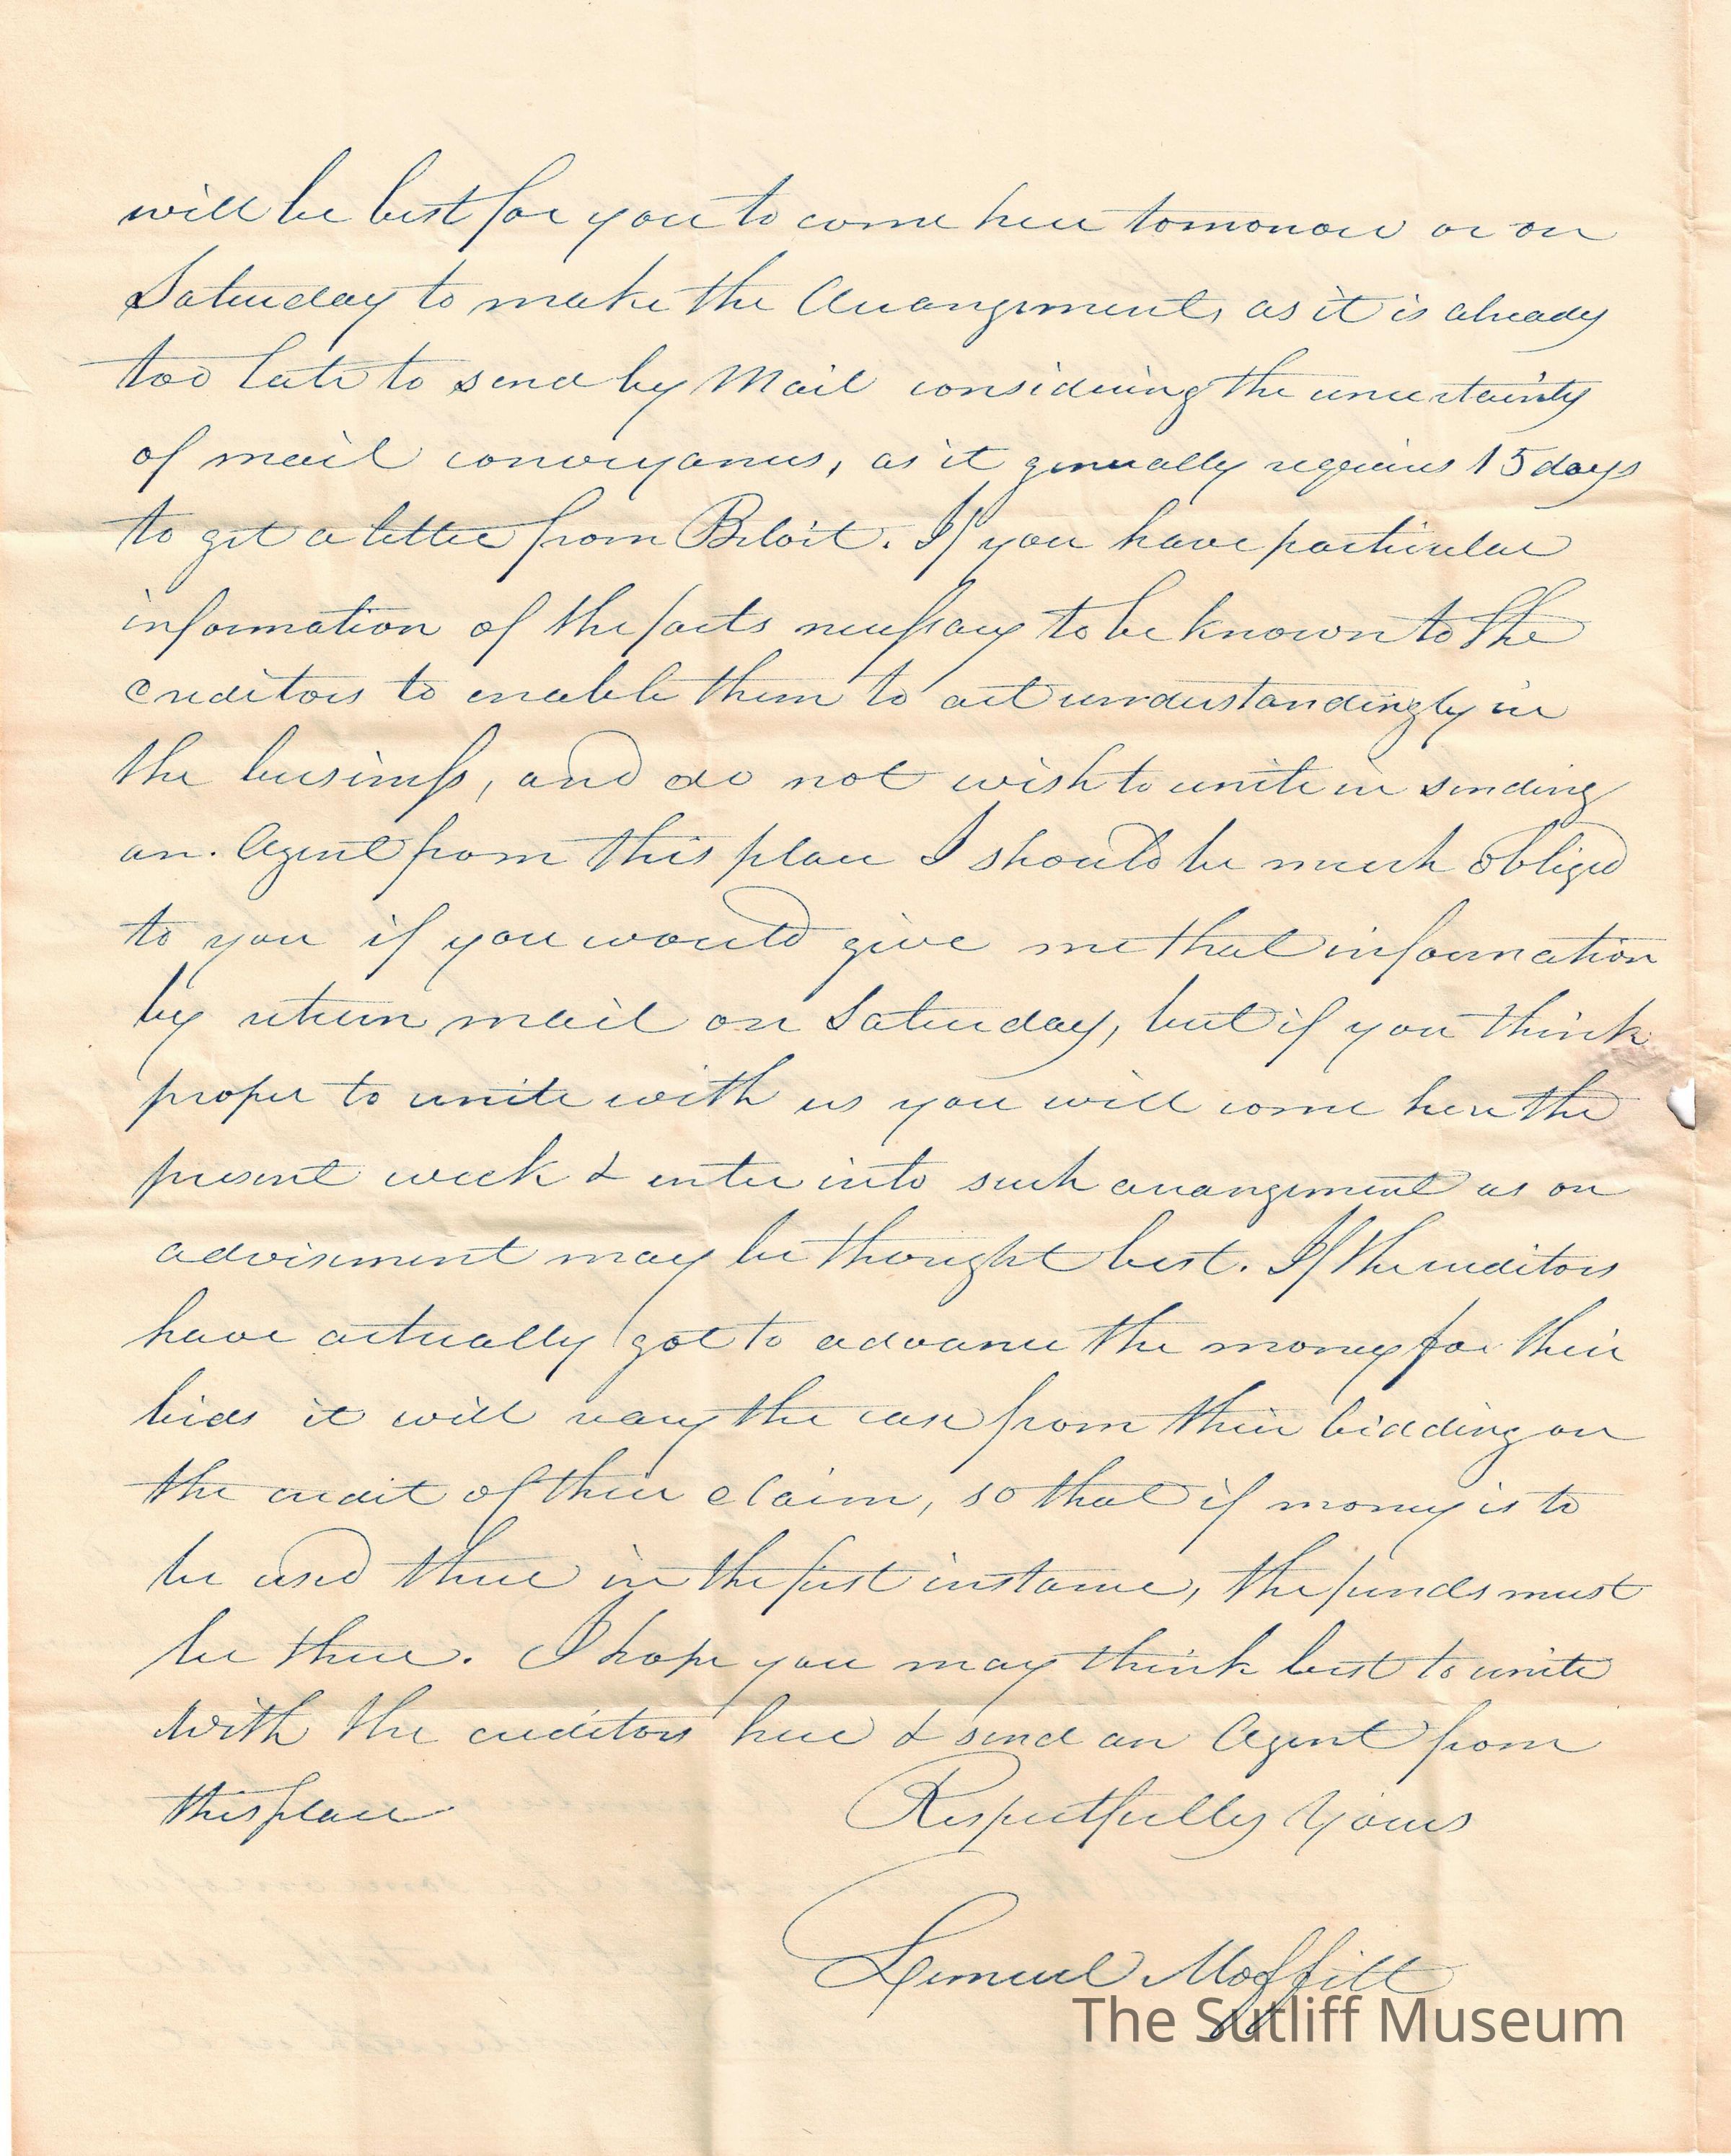 will be best for you to come here tomorrow or on
Saturday to make the Arrangement, as it is already
too late to send by Mail considering the uncertainty
of mail conveyances, as it generally requires 15 days
to get a letter from Beloit. If you have particular
information of the facts necessary to be known to the
creditors to enable them to act understandingly in
the business, and do not wish to unite in sending
an. Agent from this place I should be much obliged
to you if you would give me that information
by return mail on Saturday, but if you think
proper to unite with us you will come here the
present week & enter into such arrangement as on
advisement may be thought best. If the creditors
have actually got to advance the money for their
bids it will vary the case from their bidding on
the credit of their claim, so that if money is to
be used there in the first instance, the funds must
be there. I hope you may think best to unite
with the creditors here & send an Agent from
this place
Respectfully Yours
Lemuel Moffitt
The Sutliff Museum